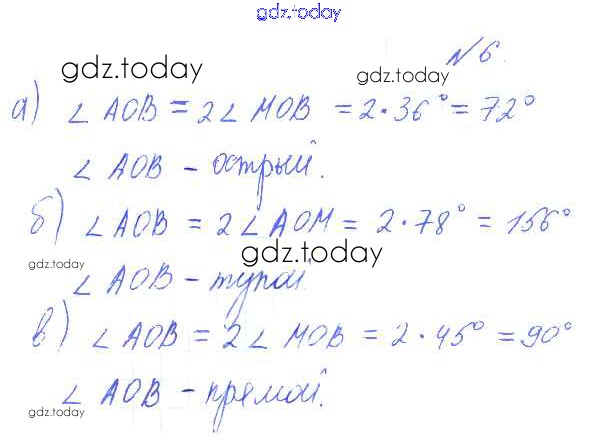 gdz.today
№ 6.
gdz.today
gdz.today
а) ∠ AOB = 2∠ MOB = 2·36° = 72°
∠ AOB - острый.
б) ∠ AOB = 2∠AOM = 2·78° = 156°
gdz.today
gdz.today
∠ AOB - тупой.
в) ∠ AOB = 2∠ MOB = 2·45° = 90°
∠ AOB - прямой.
gdz.today
gdz.today